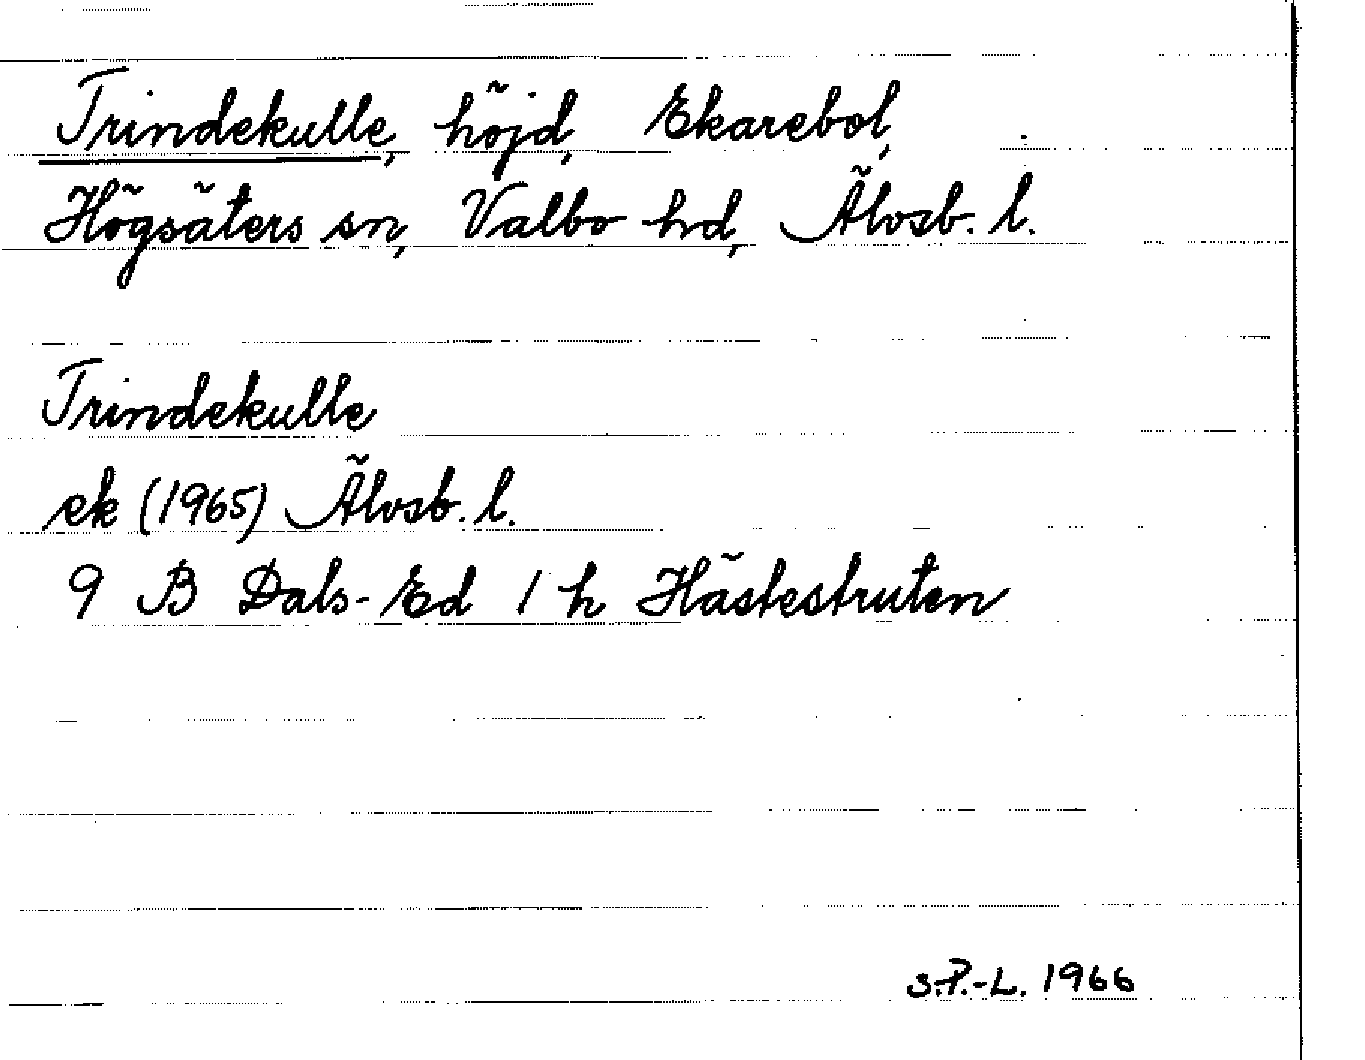 Trindekulle, höjd, Ekarebol,
Högsäters sn, Valbo hd, Älvsb. l.
Trindekulle
ek (1965) Älvsb. l.
9 B Dals-Ed 1 h Hästestruten
S.P.-L. 1966